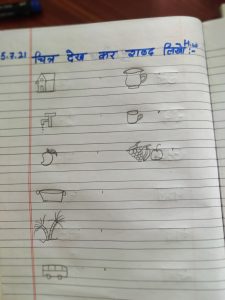 5.7.21 चित्र देख कर शब्द लिखो :-
H.W